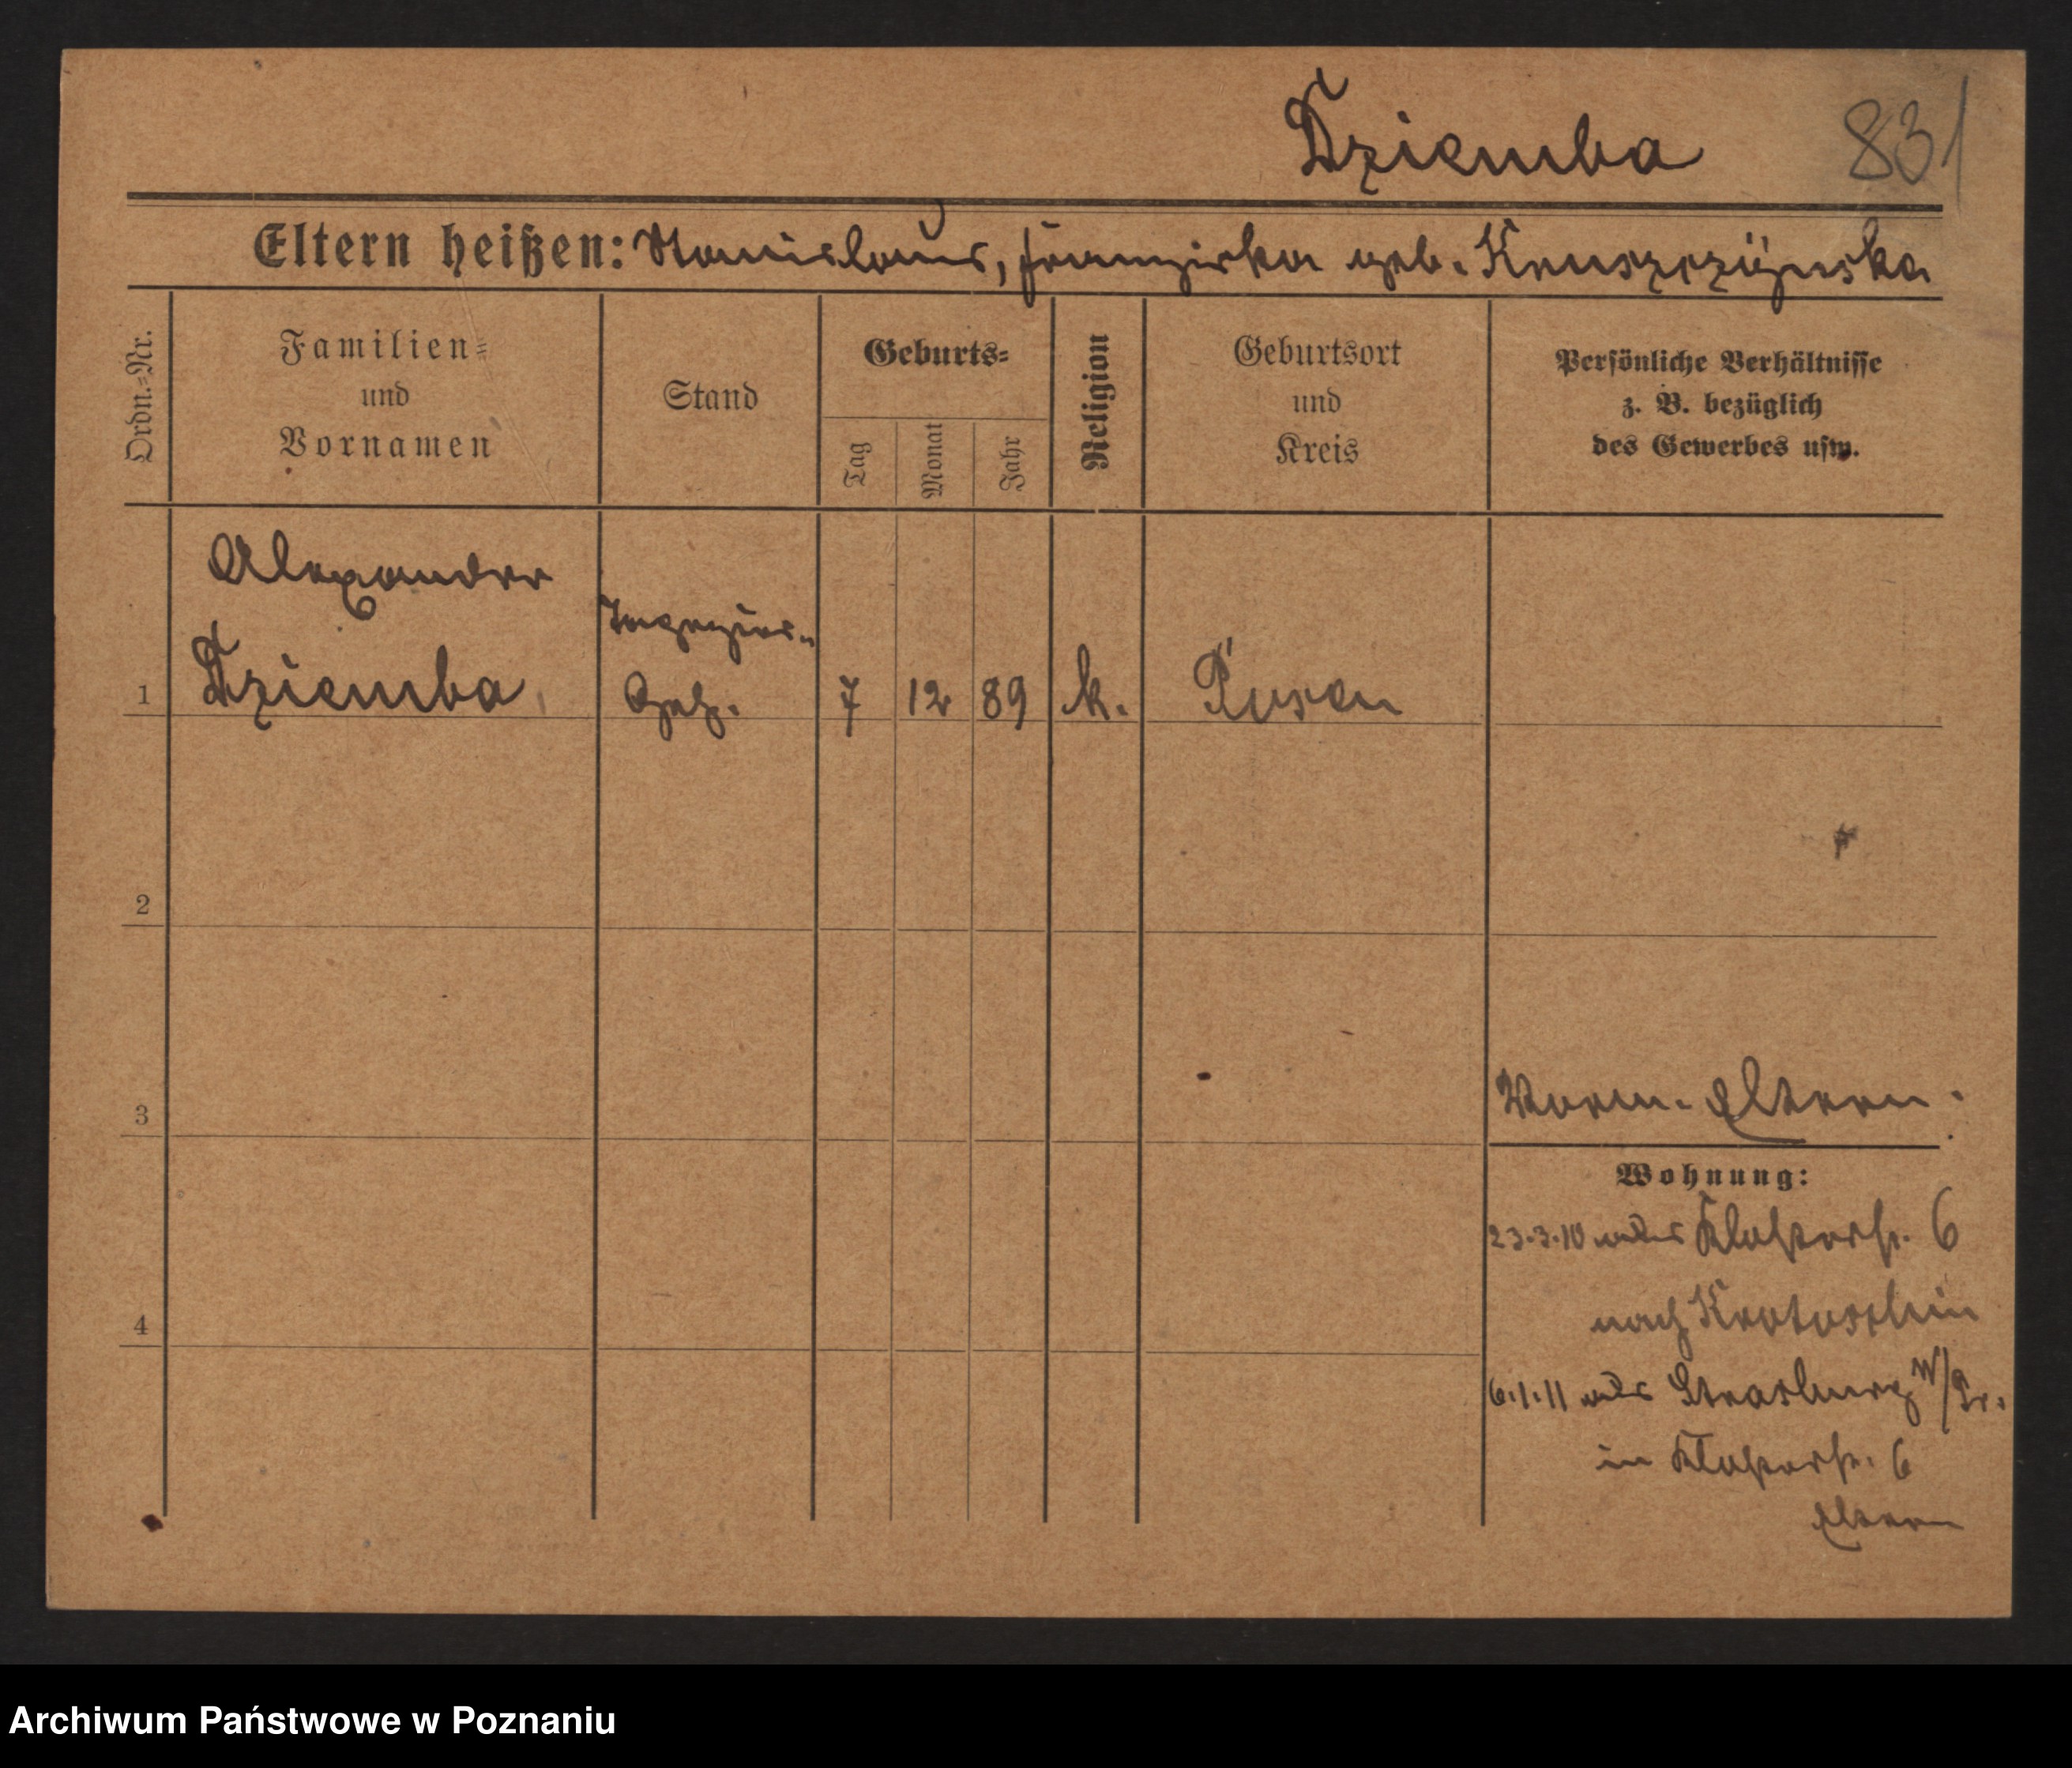 Dziemba 831
Eltern heißen: Stanislaus, Franziska geb. Kruszczÿnska
Ordn.=Nr.
Familien=
und
Vornamen
Stand
Geburts=
Tag
Monat
Jahr
Religion
Geburtsort
und
Kreis
Persönliche Verhältnisse
z. B. bezüglich
des Gewerbes usw.
Alexander
Dziemba
1
7 12 89 k. Posen
2
3
Vorm. Eltern.
Wohnung:
23.3.10 Klosterstr. 6
nach Krotoschin
6.1.11 aus Strasburg W/Pr.
in Klosterstr. 6
Eltern
4
Archiwum Państwowe w Poznaniu